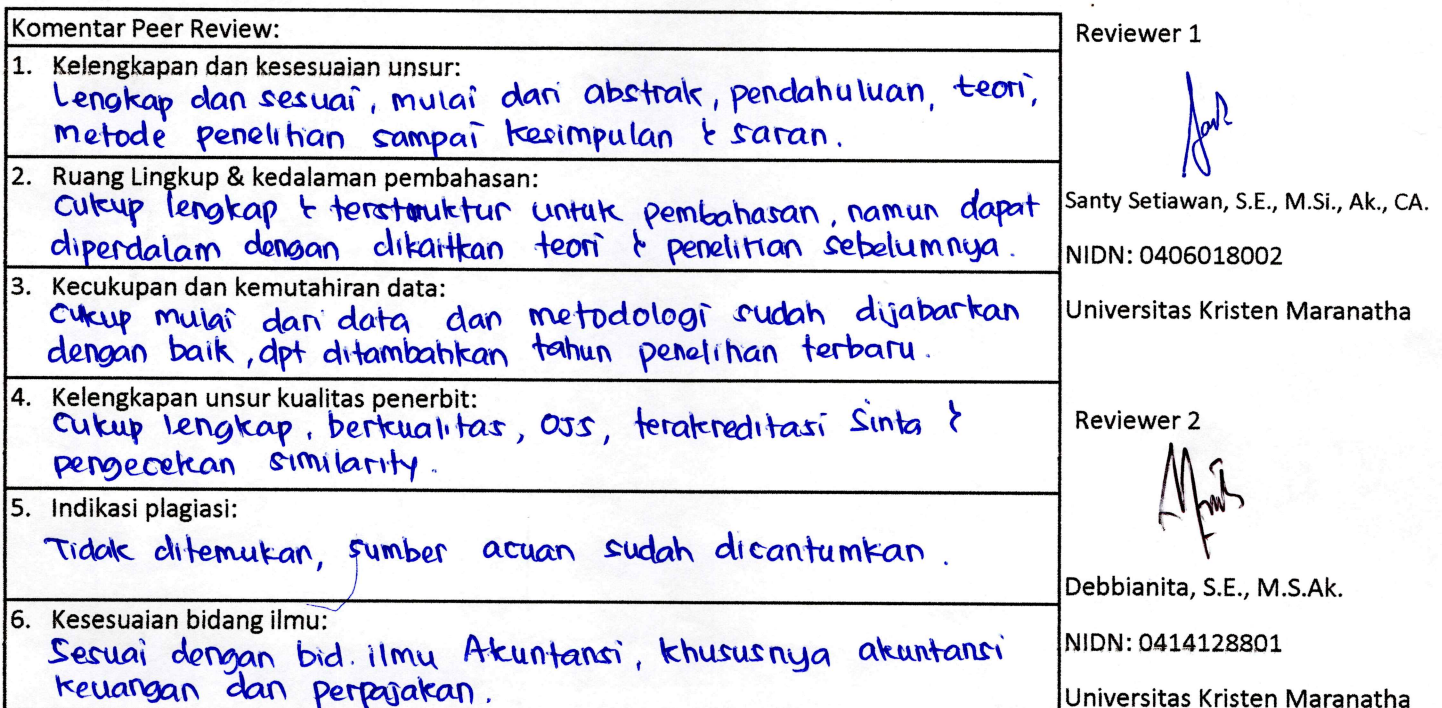 Komentar Peer Review:
1. Kelengkapan dan kesesuaian unsur:
Lengkap dan sesuai, mulai dari abstrak, pendahuluan, teori,
metode penelitian sampai kesimpulan & saran.
2. Ruang Lingkup & kedalaman pembahasan:
Cukup lengkap & terstruktur untuk pembahasan, namun dapat
diperdalam dengan dikaitkan teori & penelitian sebelumnya.
3. Kecukupan dan kemutahiran data:
Cukup mulai dari data dan metodologi sudah dijabarkan
dengan baik, dpt ditambahkan tahun penelitian terbaru.
4. Kelengkapan unsur kualitas penerbit:
Cukup lengkap, berkualitas, OJS, terakreditasi Sinta &
pengecekan similarity.
5. Indikasi plagiasi:
Tidak ditemukan, sumber acuan sudah dicantumkan.
6. Kesesuaian bidang ilmu:
Sesuai dengan bid. ilmu Akuntansi, khususnya akuntansi
keuangan dan perpajakan.
Reviewer 1
Santy Setiawan, S.E., M.Si., Ak., CA.
NIDN: 0406018002
Universitas Kristen Maranatha
Reviewer 2
Debbianita, S.E., M.S.Ak.
NIDN: 0414128801
Universitas Kristen Maranatha